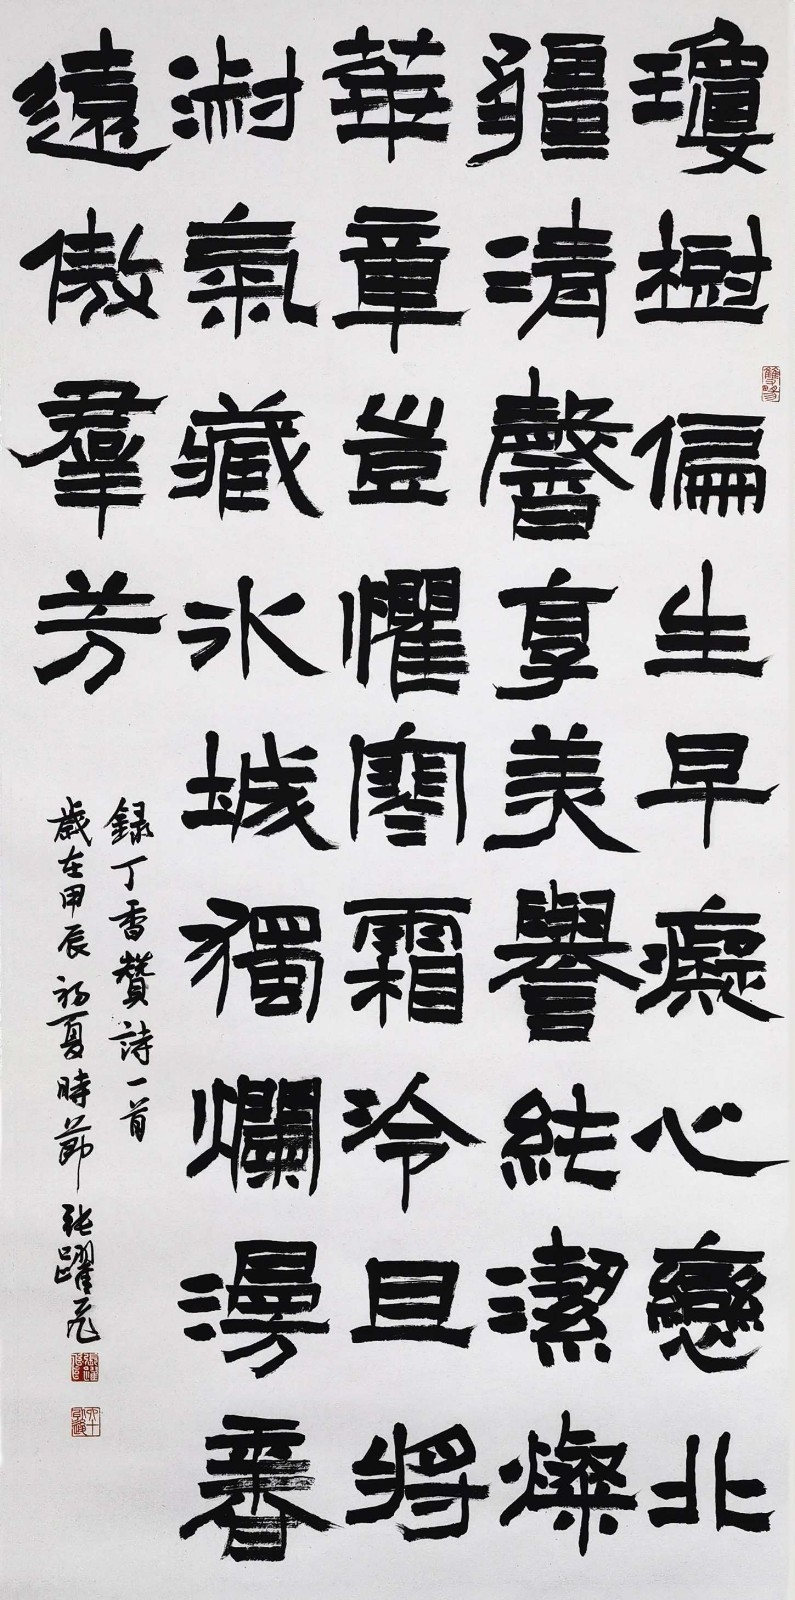 瓊樹偏生早癡心戀北
疆清馨享美譽純潔燦
華章豈懼寒霜冷且將
淑氣藏冰城獨爛漫香
遠傲羣芳
錄丁香贊詩一首
歲在甲辰初夏時節 張躍飛